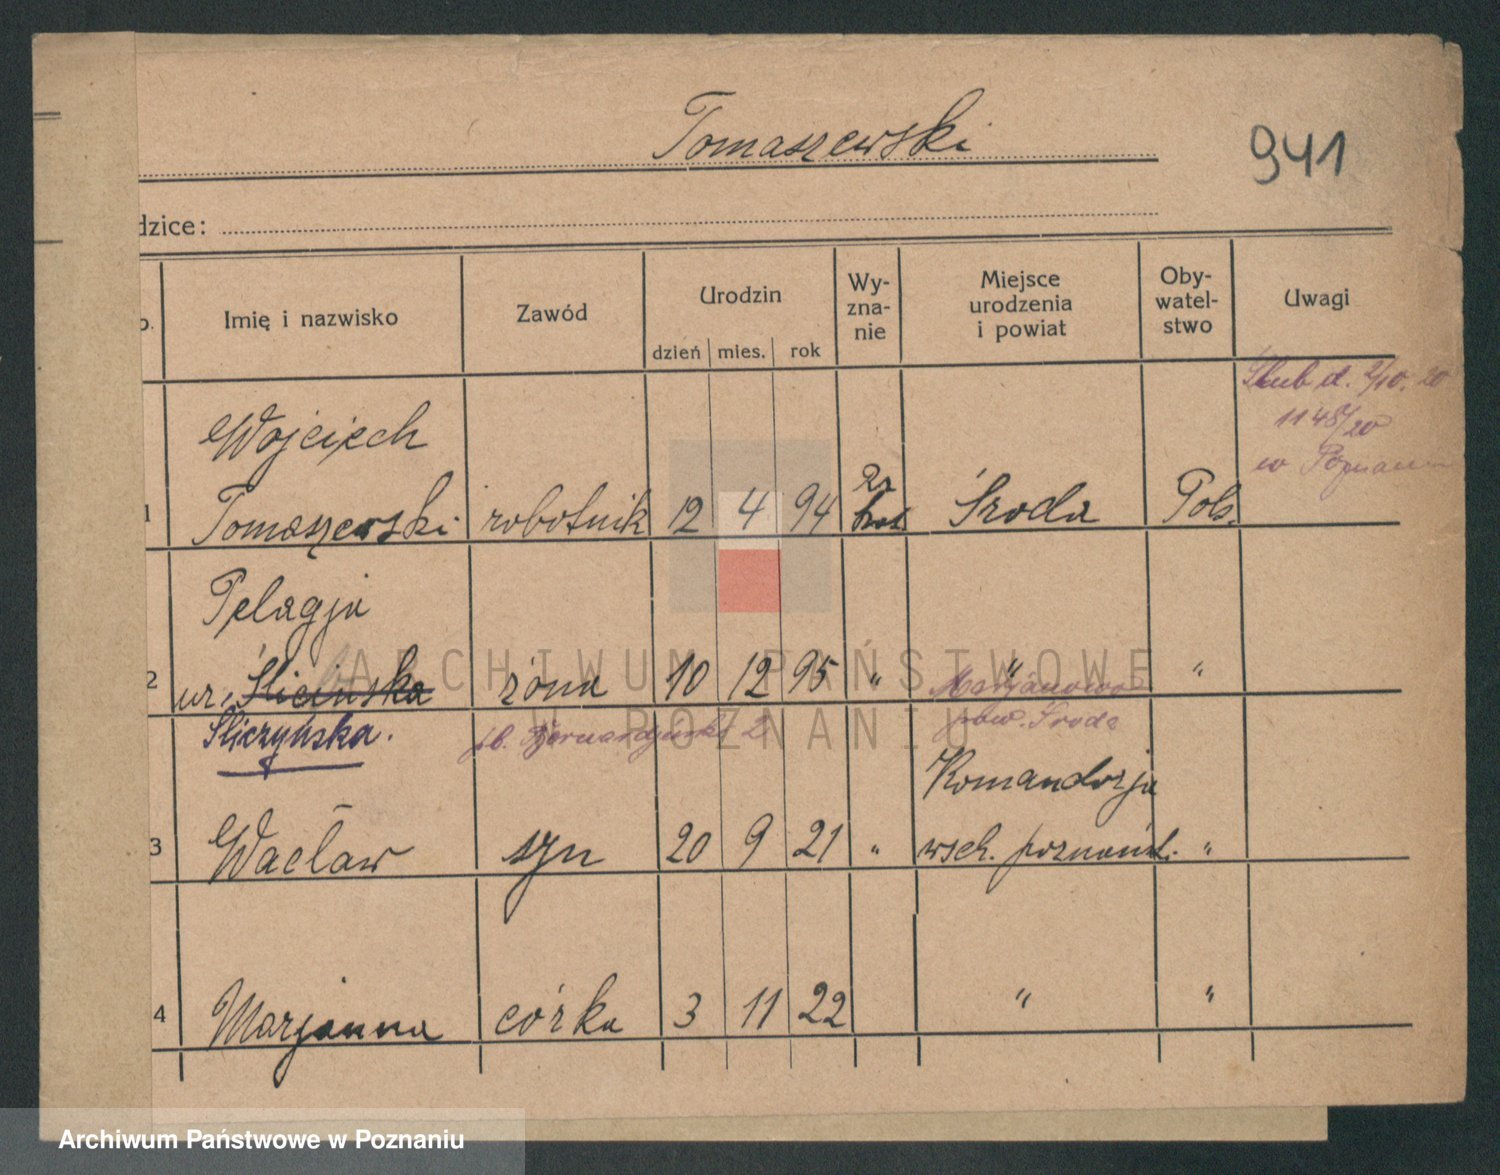 Tomaszewski
941
dzice:
o.
Imię i nazwisko
Zawód
Urodzin
dzień mies. rok
Wy-
zna-
nie
Miejsce
urodzenia
i powiat
Oby-
watel-
stwo
Uwagi
Ślub d. 2/10. 20
1148/20
w Poznaniu
Wojciech
1 Tomaszewski robotnik 12 4 94 rz kat Środa Pols.
Pelagja
2 ur. Ślicińska żona 10 12 95 " " "
Marjanowo
Śliczyńska. pow. Środa
Bernardyński 2
Komandorja
3 Wacław syn 20 9 21 " wsch. poznańsk. "
4 Marjanna córka 3 11 22 " "
ARCHIWUM PAŃSTWOWE
W POZNANIU
Archiwum Państwowe w Poznaniu